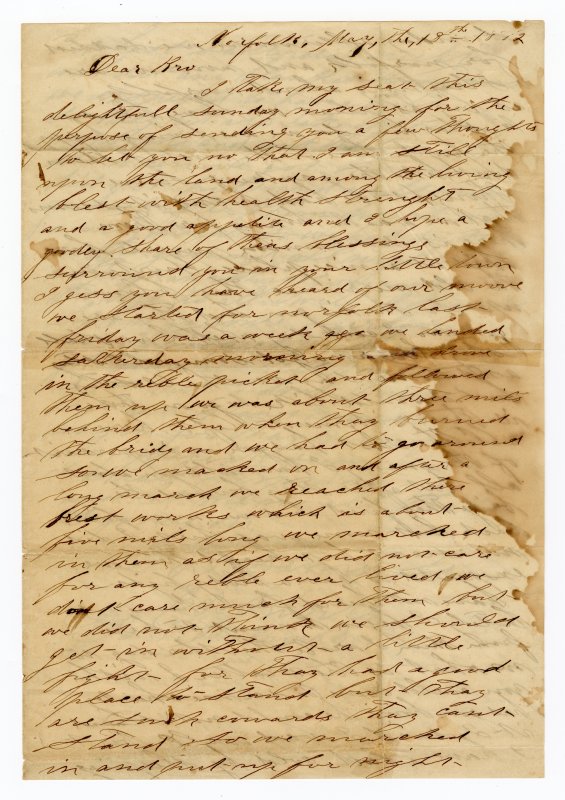 Norfolk, May, the, 18th 1862
Dear Bro
I take my seat this
delightfull sunday morning for the
perpose of sending you a few thoughts
to let you no that I am still
upon the land and among the living
blest with health strenght
and a good appetite and I hope a
goodey share of theas blessings
surrounds you in your little town
I gess you have heard of our moove
we started for norfolk last
friday was a week ago we landed
satterday morning and drove
in the reble picket and followed
them up we was about three mils
behind them when thay burned
the bridg and we had to go around
so we marched on and after a
long march we reached there
brest works which is about
five mils long we marched
in them as tho we did not care
for any reble ever lived we
dont care much for them but
we did not think we should
get in without a little
fight for thay had a good
place to stand but thay
are such cowards thay cant
stand so we marched
in and put up for night